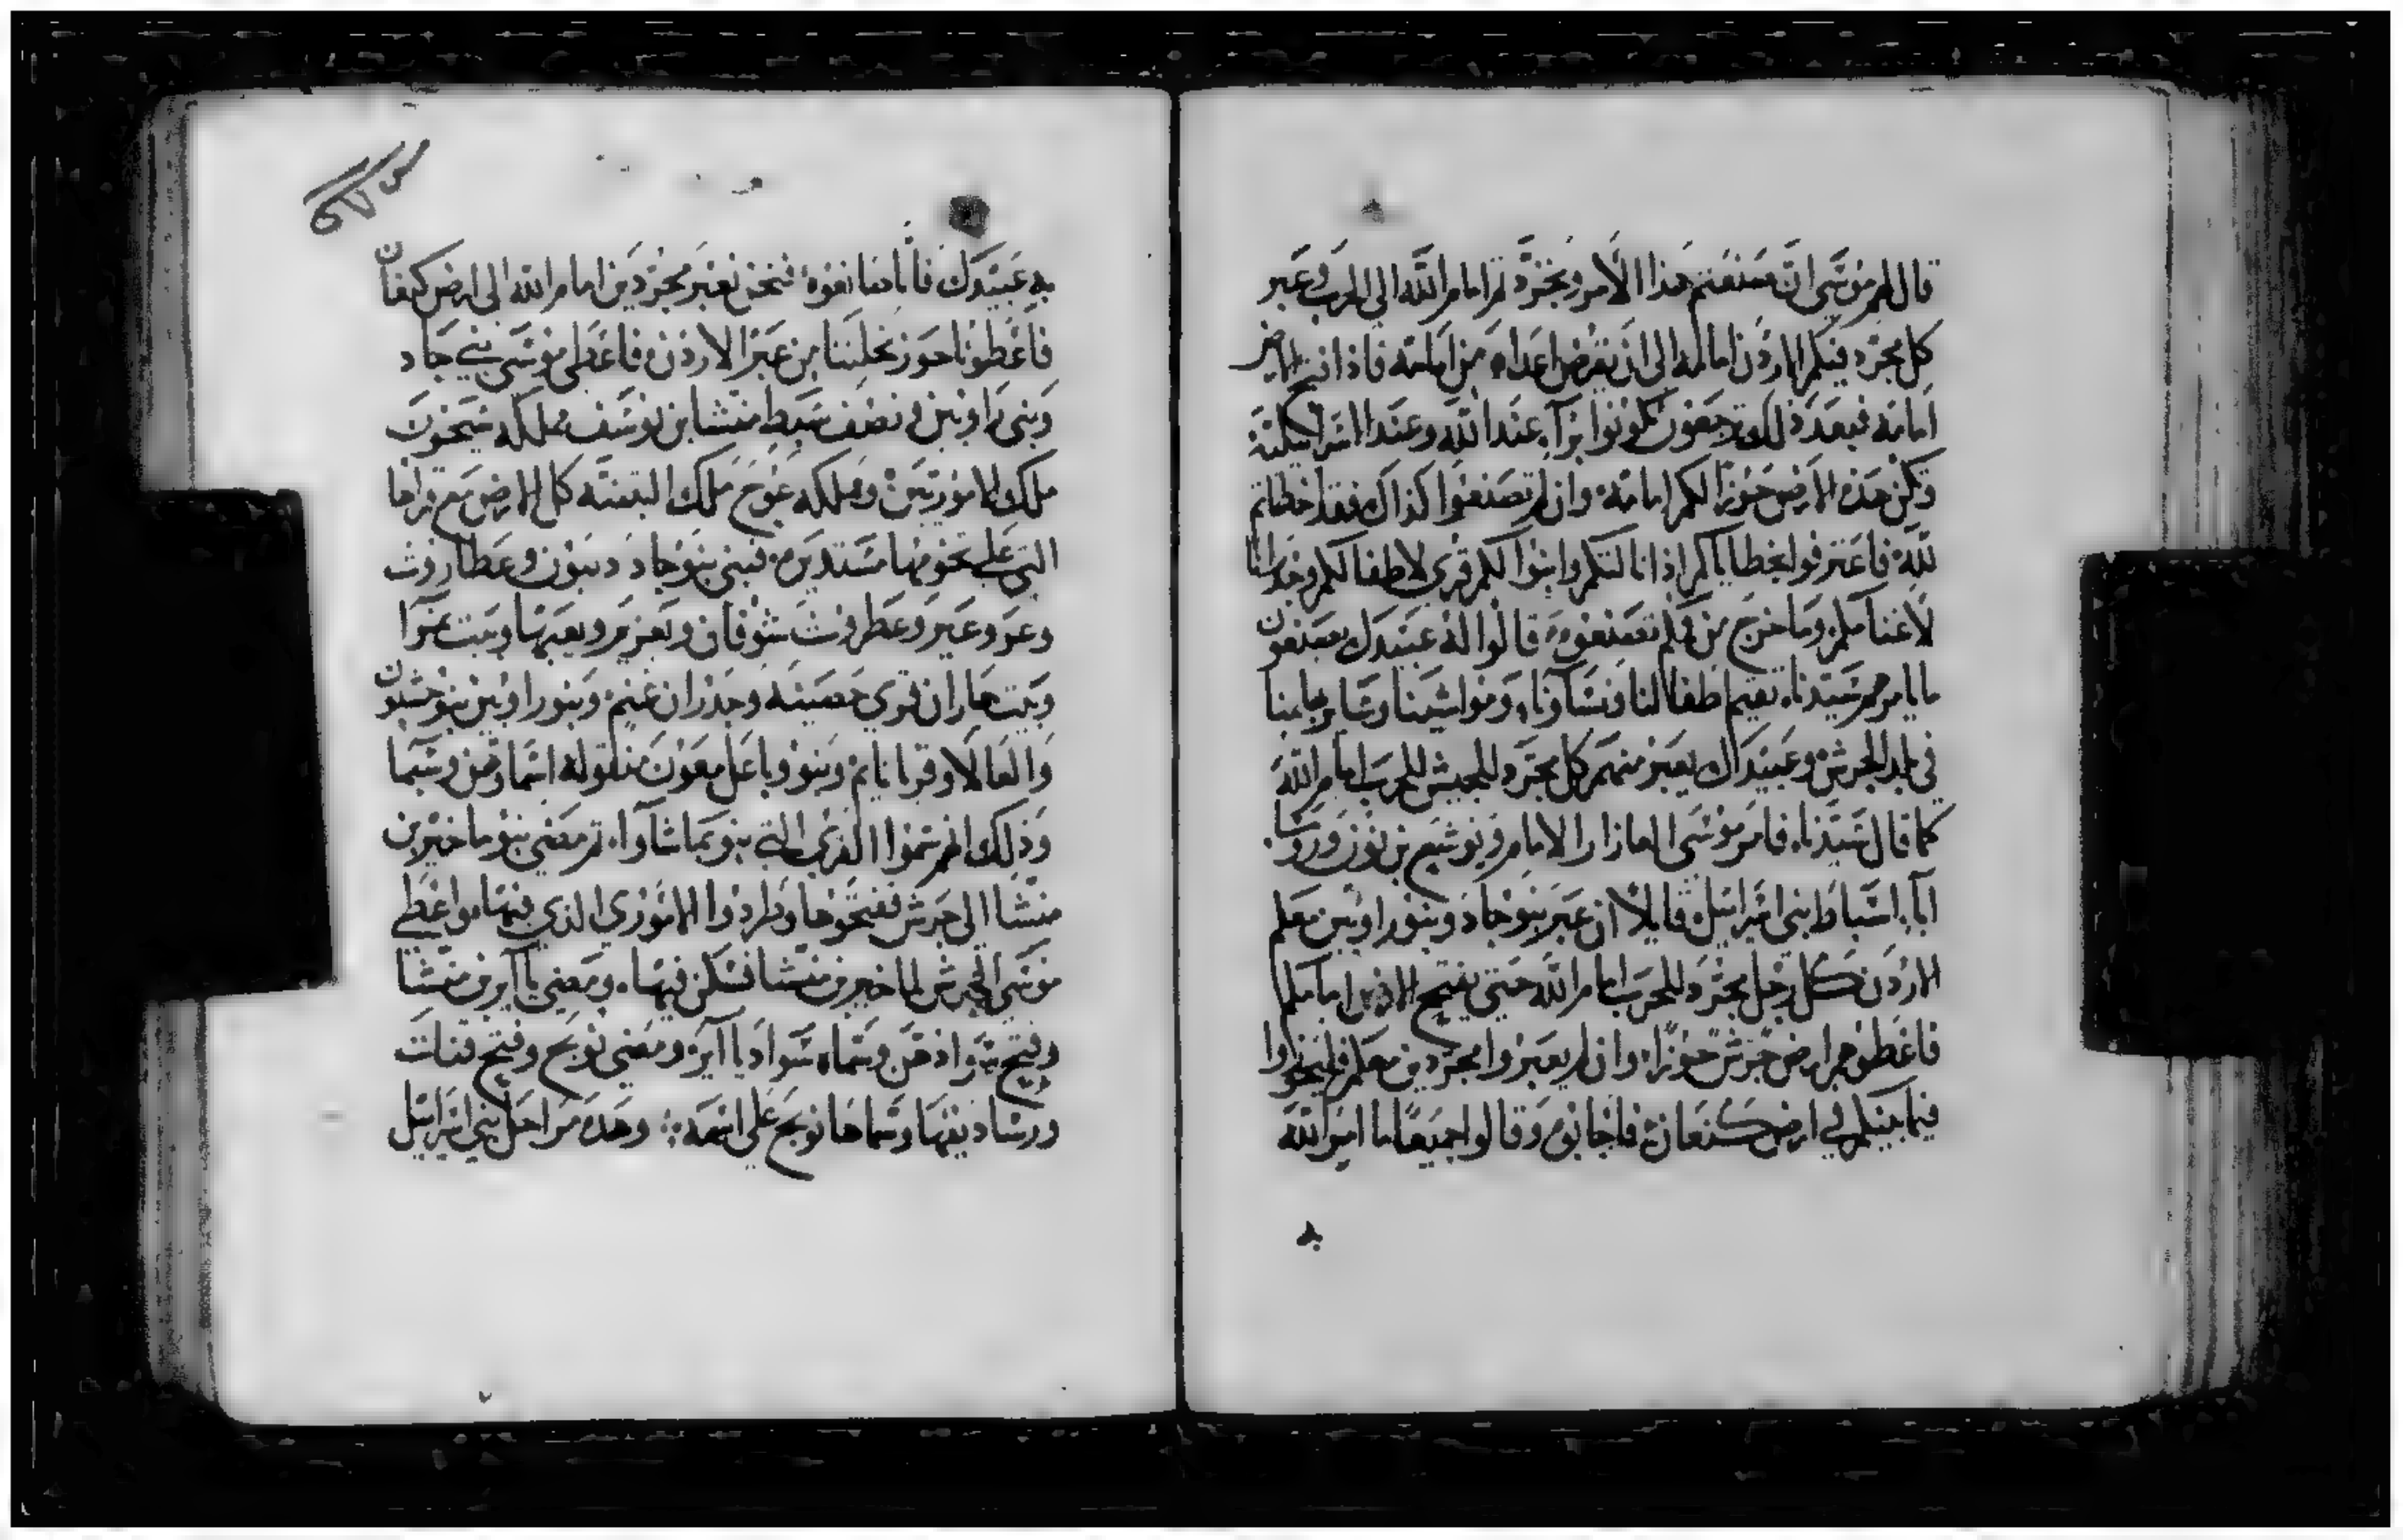 قال لهم موسى ان صنعتم هذا الامر وتجردتم امام الله الى الحرب وعبر
كل مجرد منكم الاردن امامه الى ان يقرض اعداه من امامه فاذا فتح الارض
امامه فبعد ذلك ترجعون تكونوا برآء عند الله وعند اسراييل
وتكن هذه الارض حوزا لكم امامه وان لم تصنعوا كذاك فقد اخطاتم
لله فاعترفوا بخطاياكم اذا نالتكم وابنوا لكم قرى لاطفالكم وجدرانا
لاغنامكم وما خرج من فيكم تصنعوه قالوا له عبيدك يصنعون
ما يامرهم سيدنا تقيم اطفالنا ونساونا ومواشينا وساير بهايمنا
في بلد الجرش وعبيدك يعبر منهم كل مجرد للجيش للحرب امام الله
كما قال سيدنا فامر موسى العازار الامام ويوشع بن نون وروسا
آباء اسباط بني اسراييل قايلا ان عبر بنو جاد وبنو راوبين معكم
الاردن كل رجل مجرد للحرب امام الله حتى يفتح الارض امامكم
فاعطوهم ارض جرش حوزا وان لم يعبروا مجردين معكم فليحوزوا
فيما بينكم في ارض كنعان فاجابوه وقالوا جميعا ما امر الله
به عبيدك فانا صانعوه فنحن نعبر مجردين امام الله الى ارض كنعان
فاعطونا حوز نحلتنا من عبر الاردن فاعطى موسى بني جاد
وبني راوبين ونصف سبط منشا بن يوسف مملكة سيحون
ملك الاموريين ومملكة عوج ملك البثنية كل الارض مع قراها
التي على تخومها مستديرة فبنى بنو جاد ديبون وعطاروث
وعروعير وعطروث شوفان ويعزير ويعبهها وبيت نمرا
وبيت هاران قرى حصينة وجدران غنم وبنو راوبين بنو حشبون
والعالا وقرياتايم ونبو وباعل معون منقولة اسماوهن وسبما
وذلك انهم سموا القرى التي بنو بما شآوا ثم مضى بنو ماخير بن
منشا الى جرش ففتحوها وطردوا الاموري الذي فيها واعطى
موسى الجرش لماخير بن منشا فسكن فيها ومضى ياآير بن منشا
وفتح سوادهن وسماه سواد ياآير ومضى نوبح وفتح قنات
ورساديقها وسماها نوبح على اسمه وهذه مراحل بني اسراييل